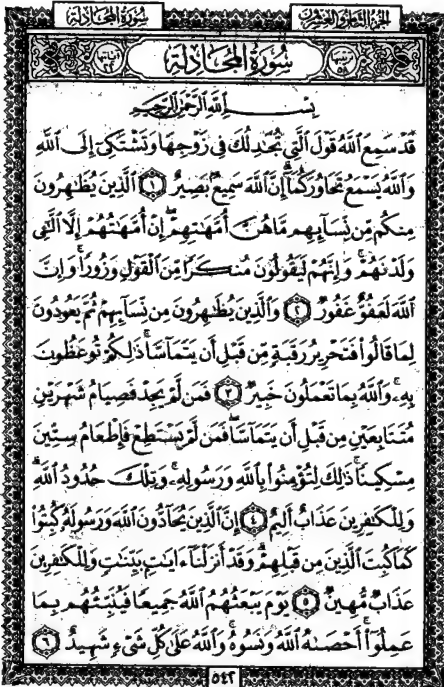 الجزء الثامن والعشرون سورة المجادلة
سُورَةُ المُجَادلَة
بِسْمِ اللَّهِ الرَّحْمَٰنِ الرَّحِيمِ
قَدْ سَمِعَ ٱللَّهُ قَوْلَ ٱلَّتِى تُجَٰدِلُكَ فِى زَوْجِهَا وَتَشْتَكِىٓ إِلَى ٱللَّهِ
وَٱللَّهُ يَسْمَعُ تَحَاوُرَكُمَآ إِنَّ ٱللَّهَ سَمِيعٌۢ بَصِيرٌ ١ ٱلَّذِينَ يُظَٰهِرُونَ
مِنكُم مِّن نِّسَآئِهِم مَّا هُنَّ أُمَّهَٰتِهِمْ إِنْ أُمَّهَٰتُهُمْ إِلَّا ٱلَّٰٓـِٔى
وَلَدْنَهُمْ وَإِنَّهُمْ لَيَقُولُونَ مُنكَرًا مِّنَ ٱلْقَوْلِ وَزُورًا وَإِنَّ
ٱللَّهَ لَعَفُوٌّ غَفُورٌ ٢ وَٱلَّذِينَ يُظَٰهِرُونَ مِن نِّسَآئِهِمْ ثُمَّ يَعُودُونَ
لِمَا قَالُوا۟ فَتَحْرِيرُ رَقَبَةٍ مِّن قَبْلِ أَن يَتَمَآسَّا ذَٰلِكُمْ تُوعَظُونَ
بِهِۦ وَٱللَّهُ بِمَا تَعْمَلُونَ خَبِيرٌ ٣ فَمَن لَّمْ يَجِدْ فَصِيَامُ شَهْرَيْنِ
مُتَتَابِعَيْنِ مِن قَبْلِ أَن يَتَمَآسَّا فَمَن لَّمْ يَسْتَطِعْ فَإِطْعَامُ سِتِّينَ
مِسْكِينًا ذَٰلِكَ لِتُؤْمِنُوا۟ بِٱللَّهِ وَرَسُولِهِۦ وَتِلْكَ حُدُودُ ٱللَّهِ
وَلِلْكَٰفِرِينَ عَذَابٌ أَلِيمٌ ٤ إِنَّ ٱلَّذِينَ يُحَآدُّونَ ٱللَّهَ وَرَسُولَهُۥ كُبِتُوا۟
كَمَا كُبِتَ ٱلَّذِينَ مِن قَبْلِهِمْ وَقَدْ أَنزَلْنَآ ءَايَٰتٍۭ بَيِّنَٰتٍ وَلِلْكَٰفِرِينَ
عَذَابٌ مُّهِينٌ ٥ يَوْمَ يَبْعَثُهُمُ ٱللَّهُ جَمِيعًا فَيُنَبِّئُهُم بِمَا
عَمِلُوٓا۟ أَحْصَىٰهُ ٱللَّهُ وَنَسُوهُ وَٱللَّهُ عَلَىٰ كُلِّ شَىْءٍ شَهِيدٌ ٦
٥٤٢